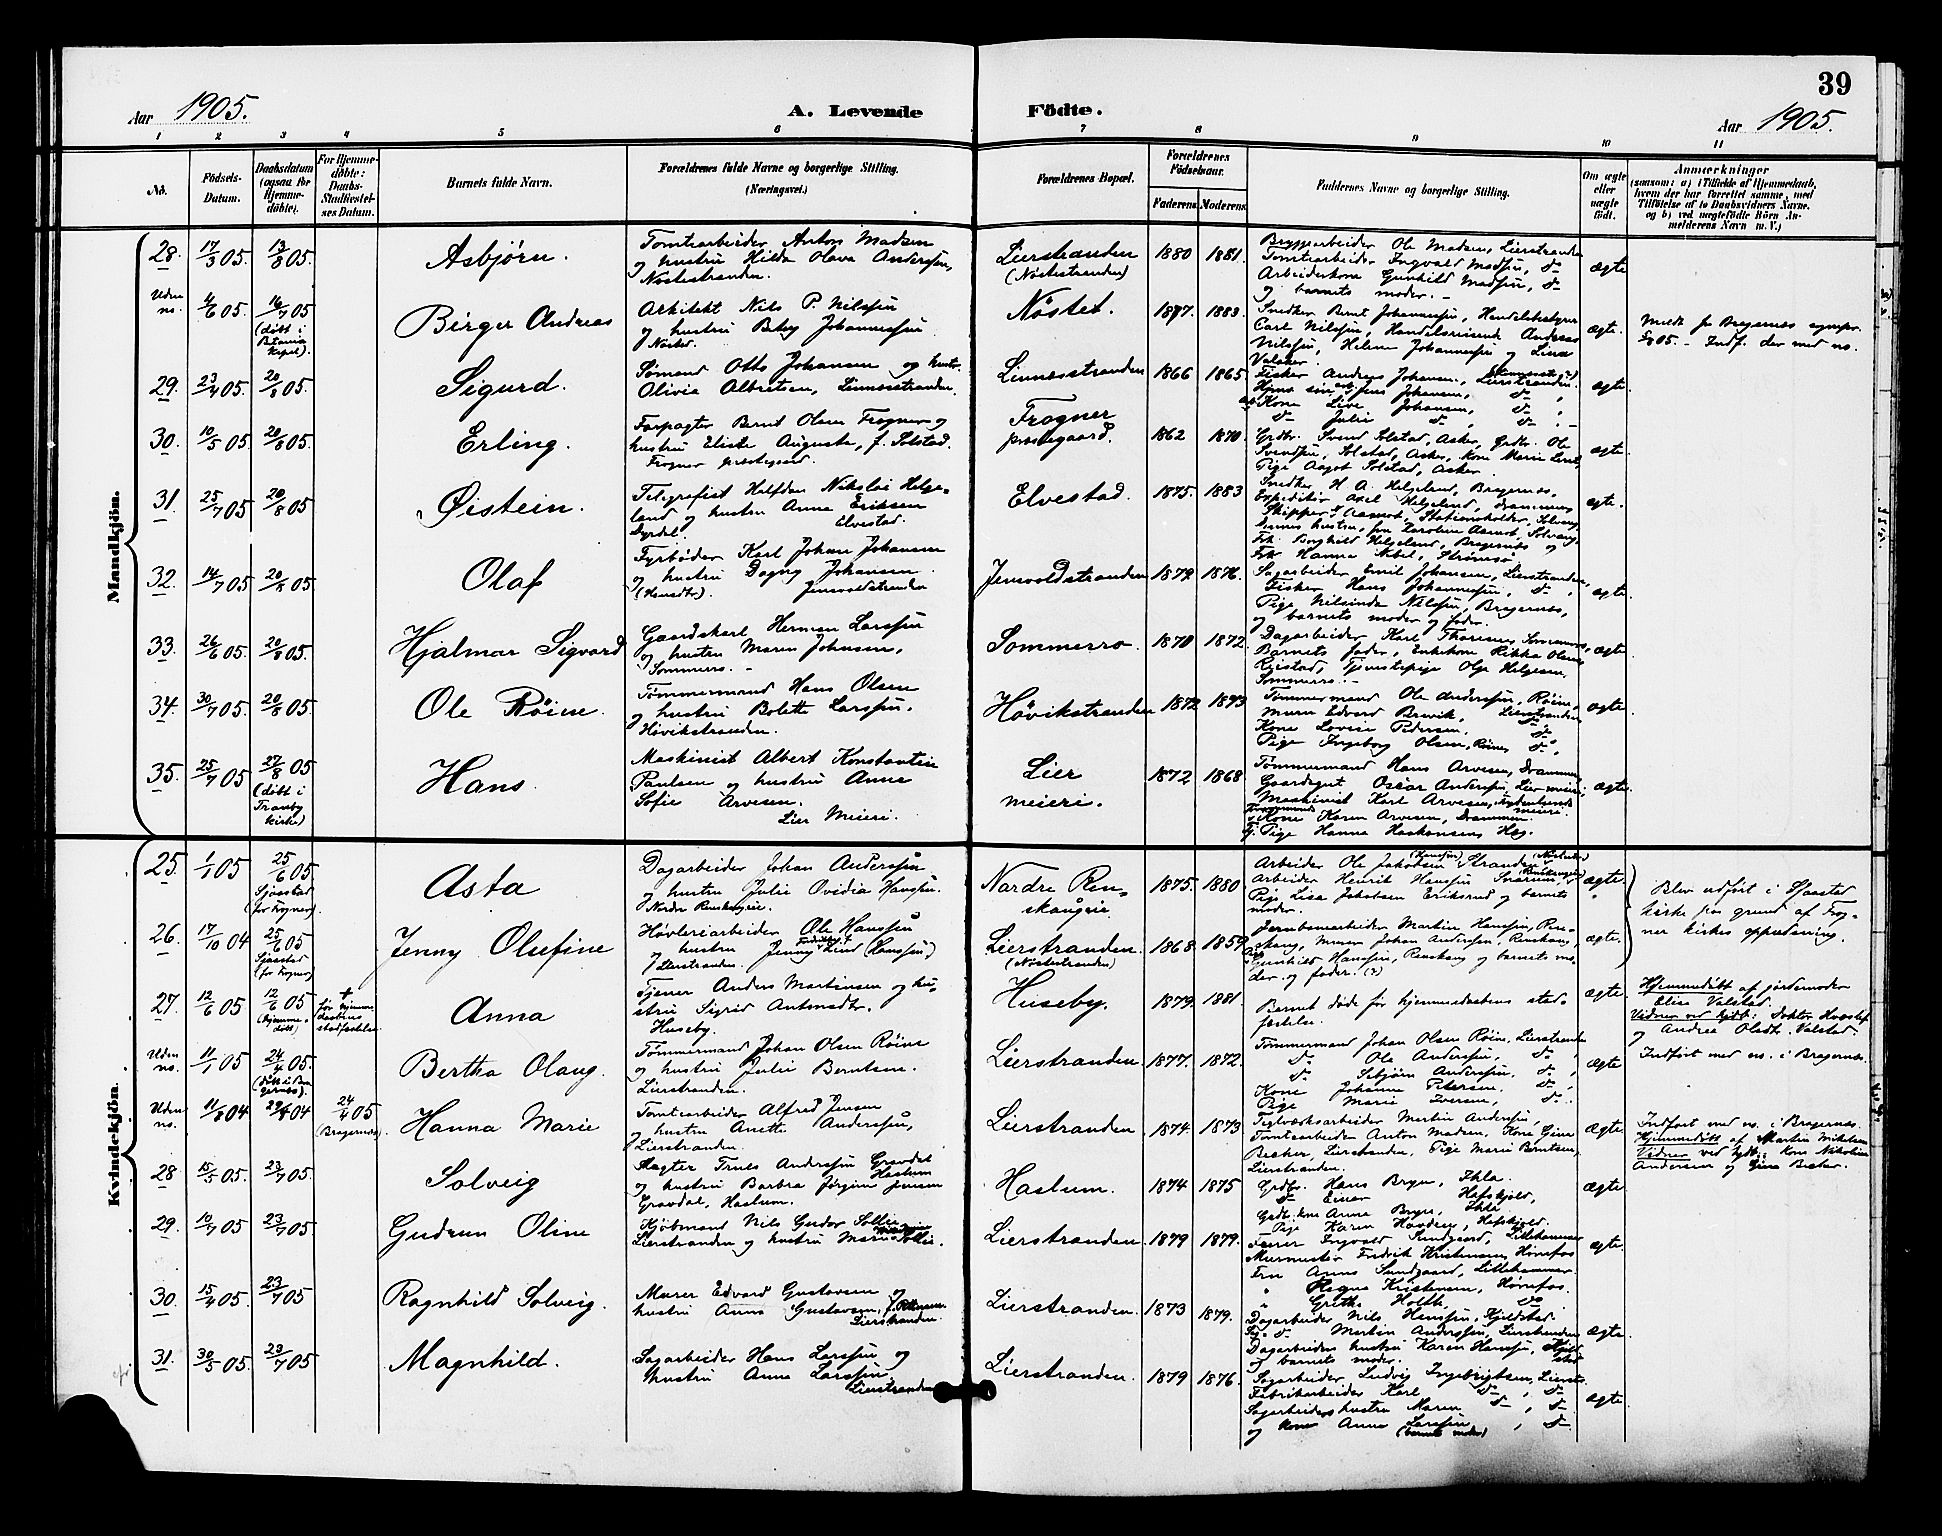 39
Aar 1905. A. Levende Födte. Aar 1905.
1 2 3 4 5 6 7 8 9 10 11
No.
Födsels-
Datum.
Daabsdatum
(ogsaa for
Hjemme-
döbte).
For Hjemme-
döbte:
Daabs-
Stadfæstel-
ses Datum.
Barnets fulde Navn.
Forældrenes fulde Navne og borgerlige Stilling.
(Næringsvei.)
Forældrenes Bopæl.
Forældrenes
Födselsaar.
Faderens. Moderens.
Faddernes Navne og borgerlige Stilling.
Om ægte
eller
uægte
født.
Anmærkninger
(saasom: a) i Tilfælde af Hjemmedaab,
hvem der har forrettet samme, med
Tilföielse af to Daabsvidners Navne,
og b) ved uægtefödte Börn An-
melderens Navn m. V.)
Mandkjön.
28. 17/3 05. 13/8 05. Asbjörn.
Tomtearbeider Anton Madsen
og hustru Hilda Olava Andersen,
Nøstestranden.
Lierstranden
(Nøstestranden)
1880 1881.
Bryggearbeider Ole Madsen, Lierstranden
Tomtearbeider Ingvald Madsen, do
Arbeiderkone Gunhild Madsen, do
og barnets moder.
ægte
Uden
no. 4/6 05. 16/7 05
(døbt i
Betania
kapel).
Birger Andreas
Arkitekt Nils P. Nilssen
og hustru Betsy Johannessen
Nøstet.
Nöstet.
1877. 1883.
Snedker Bernt Johannessen, Handelsbestyrer
Carl Nilssen, Handelsreisende Andreas
Nilssen, Helene Johannessen og Lina
ægte.
Meldt fr Bragernes sognepr.
05. – Indf. der med no.
29. 23/4 05. 20/8 05. Sigurd.
Sømand Otto Johansen og hustr.
Olivia Albretsen, Linnesstranden.
Linnesstranden
1866 1865
Fisker Andreas Johansen, Lierstranden
Jens Johansen, do
Kone Live Johansen, do
do Julie do, do
ægte
30. 10/5 05. 20/8 05. Erling.
Forpagter Bernt Olsen Frogner og
hustru Elise Auguste, f. Solstad.
Frogner prestegaard.
Frogner
prestegaard.
1862 1870.
Grdbr. Svend Solstad, Asker, Grdbr. Ole
Svendsen, Solstad, Asker, Kone Marie
Pige Aagot Solstad, Asker.
ægte.
31. 25/7 05 20/8 05 Øistein.
Telegrafist Halfdan Nikolai Helge-
land og hustru Anna Eriksen
Dyrdal. Elvestad.
Elvestad.
1875. 1883
Snedker H. A. Helgeland, Bragernes,
Expeditör Axel Helgeland, Drammen
Skipper Aamodt, Stationsholder, Solvang,
hustru, fru Karoline Aamodt, Solvang
Frk. Borghild Helgeland, Bragernes og
Frk. Hanna Nebel, Strømsø
ægte.
32. 14/7 05 20/8 05. Olaf
Fyrbøder Karl Johan Johansen
og hustru Dagny Johansen
(Hansdtr). Jensvoldstranden
Jensvoldstranden
1879. 1876.
Sagarbeider Emil Johansen, Lierstranden,
Fisker Hans Johannessen, do,
Pige Nilsinda Nilssen, Bragernes,
og barnets moder og fader.
ægte.
33. 26/6 05. 20/8 05. Hjalmar Sigvard
Gaardskarl Herman Larssen
og hustru Maren Johnsen,
Sommerro.
Sommerro.
1870 1872.
Dagarbeider Karl Thoresen, Sommerro,
Barnets fader, Enkekone Rikka Olsen
Reistad, Tjenestepige Olga Helgesen,
Sommerro.
ægte.
34. 30/7 05. 20/8 05. Ole Röine.
Tømmermand Hans Olsen
og hustru Bolette Larssen,
Høvikstranden.
Hövikstranden
1872 1873
Tømmermand Ole Anderssen, Röine,
Murer Edvard Brevik, Lierstranden
Kone Lovise Pedersen, do.
Pige Ingeborg Olsen, Röine, do.
ægte.
35. 25/7 05 27/8 05
(døbt i
Tranby
kirke)
Hans.
Maskinist Albert Konstantin
Paulsen og hustru Anna
Sofie Arvesen.
Lier Meieri.
Lier
meieri.
1872 1868
Tømmermand Hans Arvesen, Drammen,
Gaardsgut Oscar Anderssen, Lier meieri,
Maskinist Karl Arvesen, meieri.
Kone Karen Arvesen, Drammen.
Pige Hanna Haakonsen, Hæg.
ægte.
Kvindekjön.
25. 1/1 05 25/6 05
Sjaastad
(for Frogner).
Asta
Dagarbeider Johan Anderssen
og hustru Julie Ovidia Hanssen.
Nordre Renskaugeie.
Nordre Ren-
skaugeie.
1875. 1880
Arbeider Ole Jakobsen Stranden
Arbeider Henrik Hanssen Snarum,
Pige Lisa Jakobsen Eriksrud og barnets
moder.
ægte.
Blev udført i Sjaastad
kirke paa grund af Frog-
ner kirkes oppudsning.
26. 17/10 04 25/6 05
Sjaastad
(for Frogner)
Jenny Olufine
Høvleriarbeider Ole Hanssen
og hustru Jenny Lund (Hanssen)
Lierstranden.
Lierstranden.
(Nøstestranden)
1868. 1859
Jernbanearbeider Martin Hanssen, Ren-
skaug, Murer Johan Anderssen, Renskaug,
Gunhild Hanssen, Renskaug og barnets mo-
der og fader. (?)
ægte.
27. 12/6 05 12/6 05
(hjemme-
døbt)
+
før hjemme-
daabens
stadfæstelse
Anna
Tjener Anders Martinsen og hu-
stru Sigrid Antonsdtr.
Huseby.
Huseby.
1879. 1881.
Barnet døde før hjemmedaabens stad-
fæstelse.
ægte.
Hjemmedøbt af jordemoder
Elise Valstad.
Vidner ved hjdb: Doktor
og Andrea Olsdtr. Valstad.
Uden
no. 11/1 05 24/4 05.
(døbt i Bra-
gernes).
Bertha Olaug.
Tømmermand Johan Olsen Röine
og hustru Julie Berntsen.
Lierstranden.
Lierstranden.
1877. 1872.
Tømmermand Johan Olsen Röine, Lierstranden
do Ole Anderssen, do
do Sebjörn Anderssen, do,
Kone Johanne Petersen, do,
Pige Marie Iversen, do.
ægte
Indført med no. i Bragernes.
Uden
no. 11/8 04 04 24/4 05
(Bragernes).
Hanna Marie
Tomtearbeider Alfred Jensen
og hustru Anette Anderssen,
Lierstranden.
Lierstranden.
1874. 1873
Teglværksarbeider Martin Anderssen,
Tomtearbeider Anton Madsen, Kone Gina
Bræker, Lierstranden, Pige Marie Berntsen,
Lierstranden.
ægte.
Indført med no. i Bragernes.
Hjemmedøbt af Martin Mikelsen
Vidner ved hjdb.: Kone Nikoline
Andersen og Gina Bræker.
28 15/5 05. 23/7 05. Solveig
Slagter Truls Andersen Gravdal
Haslum
og hustru Barbra Jørgine Jensen
Gravdal, Haslum.
Haslum.
1874 1875
Grdbr. Hans Bryn, Ihla.
do Einar Hafskjold,
Grdbr.kone Anna Bryn, Ihla
Pige Karen Hovdsen, Hafskjold.
ægte.
29. 10/7 05. 23/7 05. Gudrun Oline
Kjöbmand Nils Gudor Sollie
Lierstranden og hustru Marie Sollie.
Lierstranden.
1879 1879.
Farver Ingvald Sundgaard, Lillehammer
Murmester Fredrik Kristensen, Hönefos
Fru Anna Sundgaard, Lillehammer.
" Magna Kristensen, Hönefos.
" Grethe Holth, do
ægte.
30. 15/4 05. 23/7 05 Ragnhild Solveig.
Murer Edvard Gustavsen og
hustru Anna Gustavsen, f. Pettersen.
Lierstranden.
Lierstranden.
1873 1879.
Dagarbeider Nils Hanssen, Kjeldstad.
do Martin Anderssen, Lierstranden
Dagarbeiders hustru Karen Hanssen,
og barnets moder.
ægte.
31. 30/5 05. 23/7 05 Magnhild.
Sagarbeider Hans Larssen og
hustru Anna Larssen,
Lierstranden
Lierstranden.
1879 1876.
Sagarbeider Ludvig Ingebrigtsen, Lierstr.
Fabrikarbeider Karl do, do
Sagarbeiders hustru Maren do, do
og kone Anna Larssen, do
(barnets moder)
ægte.